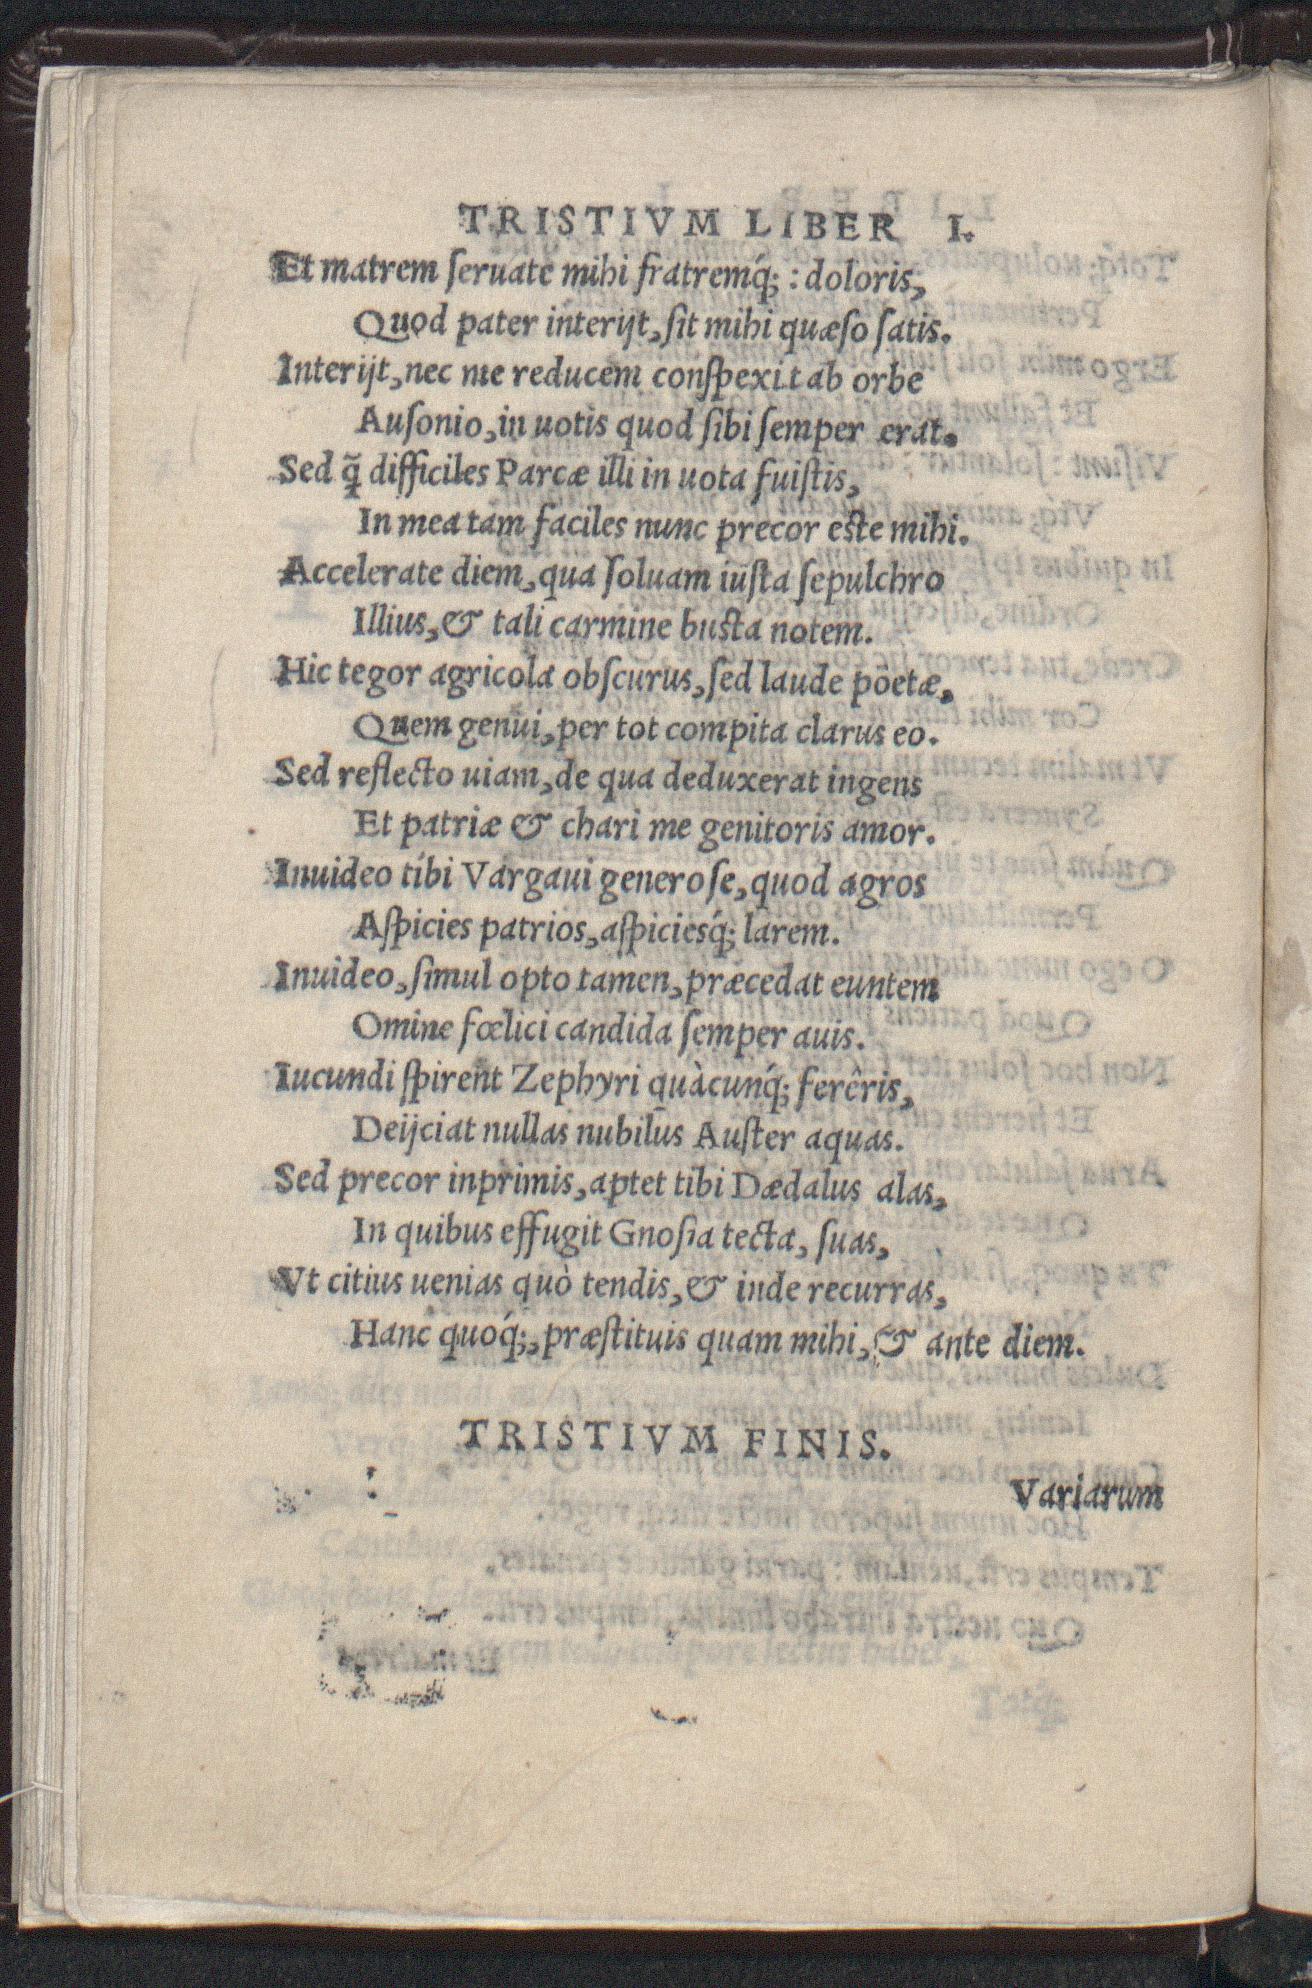 TRISTIVM LIBER I.
Et matrem ſeruate mihi fratremq́; : doloris,
Quod pater interijt, ſit mihi quæſo ſatis.
Interijt, nec me reducem conſpexit ab orbe
Auſonio, in uotis quod ſibi ſemper erat.
Sed q̃ difficiles Parcæ illi in uota fuiſtis,
In mea tam faciles nunc precor eſte mihi.
Accelerate diem, qua ſoluam iuſta ſepulchro
Illius, & tali carmine buſta notem.
Hic tegor agricola obſcurus, ſed laude poëtæ,
Quem genui, per tot compita clarus eo.
Sed reflecto uiam, de qua deduxerat ingens
Et patriæ & chari me genitoris amor.
Inuideo tibi Vargaui generoſe, quod agros
Aſpicies patrios, aſpiciesq́; larem.
Inuideo, ſimul opto tamen, præcedat euntem
Omine fœlici candida ſemper auis.
Iucundi ſpirent Zephyri quàcunq́; ferêris,
Deijciat nullas nubilus Auſter aquas.
Sed precor inprimis, aptet tibi Dædalus alas,
In quibus effugit Gnoſia tecta, ſuas,
Vt citius uenias quò tendis, & inde recurras,
Hanc quoq́;, præſtituis quam mihi, & ante diem.
TRISTIVM FINIS.
Variarum